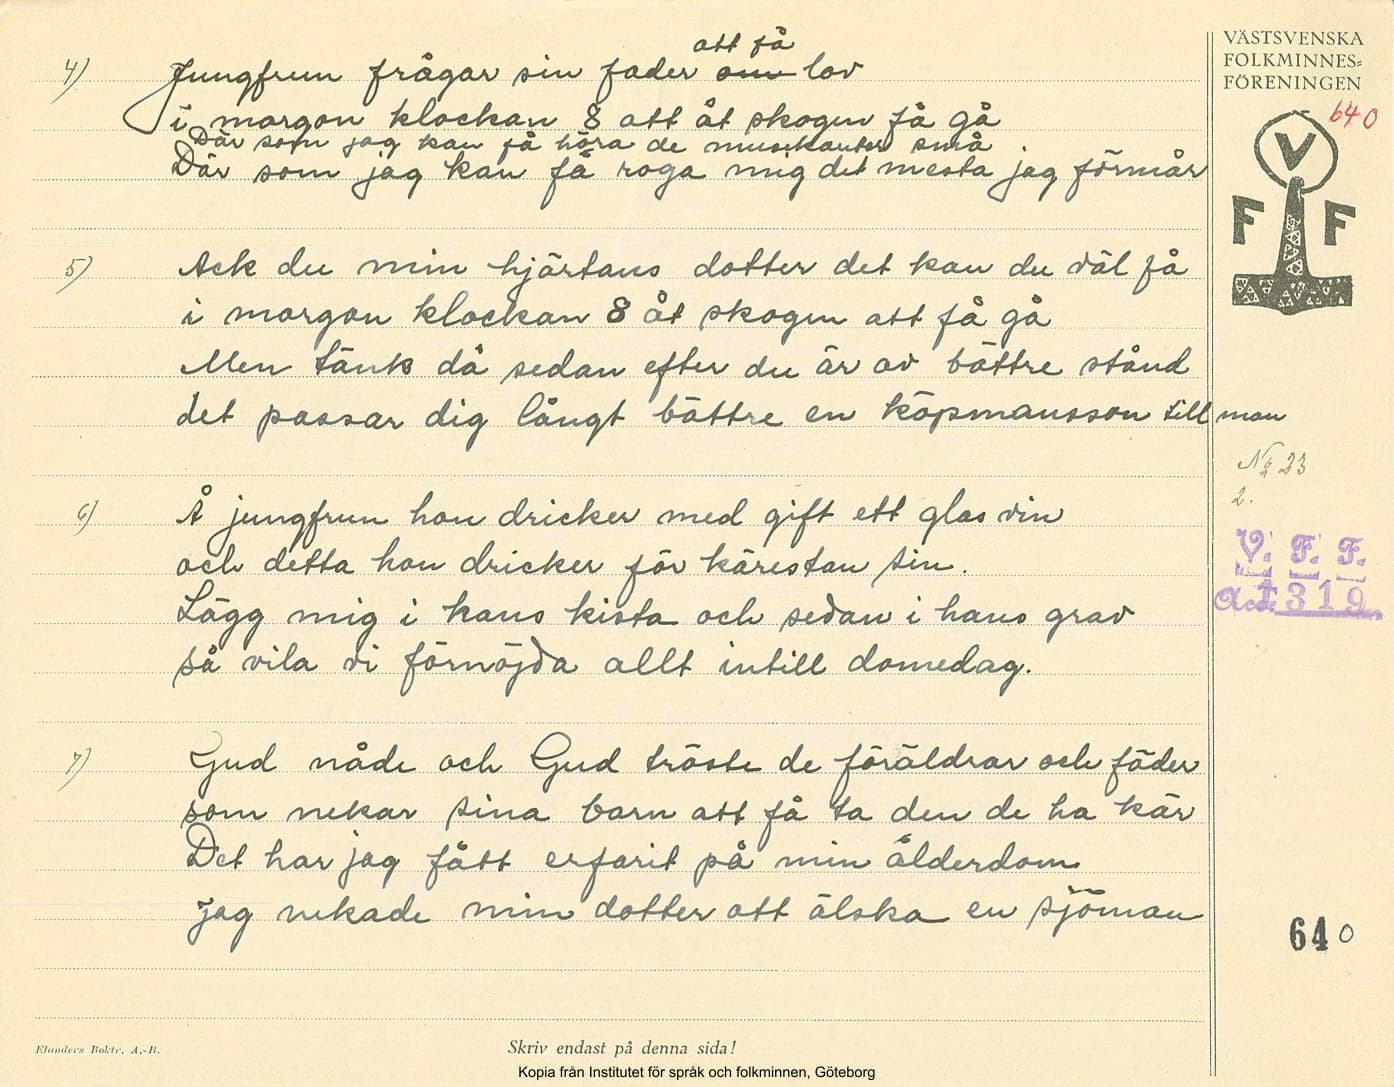 4) Jungfrun frågar sin fader om lov
att få
i morgon klockan 8 att åt skogen få gå
Där som jag kan få höra de musikanter små
Där som jag kan få roga mig det mesta jag förmår
5) Ack du min hjärtans dotter det kan du väl få
i morgon klockan 8 åt skogen att få gå
Men tänk då sedan efter du är av bättre stånd
det passar dig långt bättre en köpmansson till man
6) Å jungfrun hon dricker med gift ett glas vin
och detta hon dricker för kärestan sin.
Lägg mig i hans kista och sedan i hans grav
så vila vi förnöjda allt intill domedag.
7) Gud nåde och Gud tröste de föräldrar och fäder
som nekar sina barn att få ta den de ha kär
Det har jag fått erfarit på min ålderdom
jag nekade min dotter att älska en sjöman
VÄSTSVENSKA
FOLKMINNES-
FÖRENINGEN
640
V
F F
No 23
2.
V. F. F.
1319
640
Elanders Boktr. A.-B.
Skriv endast på denna sida!
Kopia från Institutet för språk och folkminnen, Göteborg